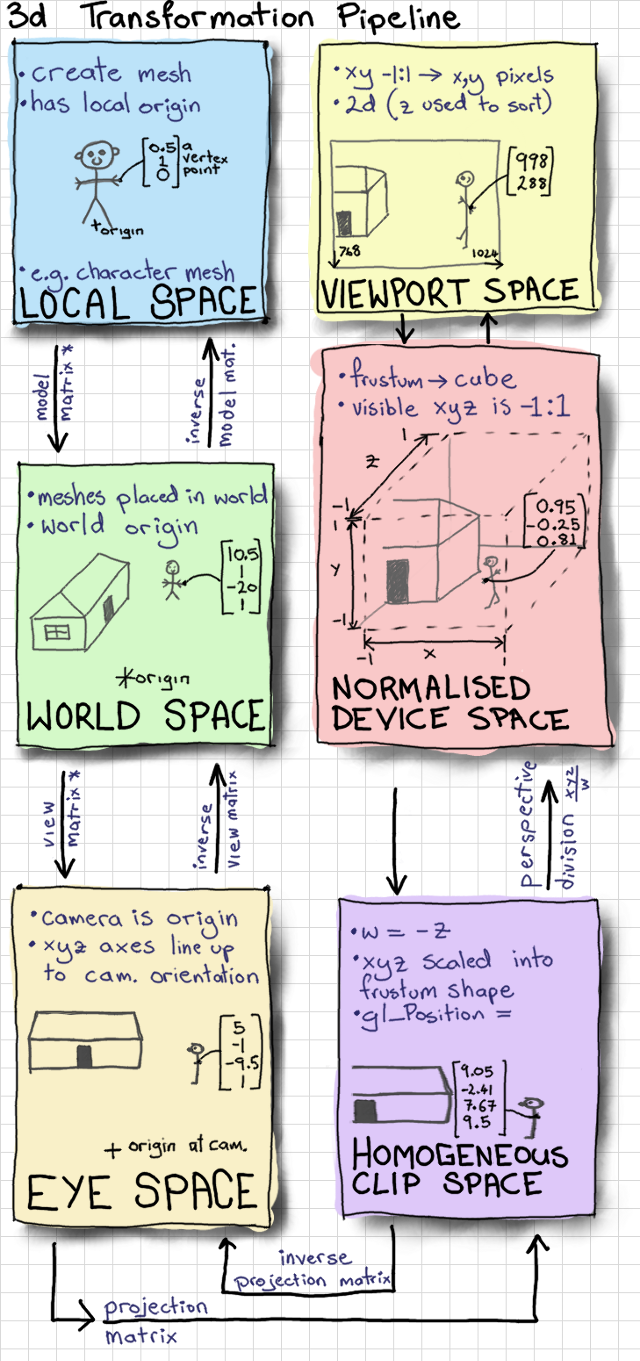 3d Transformation Pipeline
• create mesh
• has local origin
0.5
1
0
a
vertex
point
+origin
• e.g. character mesh
LOCAL SPACE
model
matrix *
inverse
model mat.
• meshes placed in world
• world origin
10.5
1
-20
1
*origin
WORLD SPACE
view
matrix *
inverse
view matrix
• camera is origin
• xyz axes line up
to cam. orientation
5
-1
-9.5
1
+ origin at cam.
EYE SPACE
projection
matrix
inverse
projection matrix
• w = -z
• xyz scaled into
frustum shape
• gl_Position =
9.05
-2.41
7.67
9.5
HOMOGENEOUS
CLIP SPACE
perspective
division xyz/w
• frustum → cube
• visible xyz is -1:1
1
z
-1
1
y
-1
-1
x
1
0.95
-0.25
0.81
NORMALISED
DEVICE SPACE
• xy -1:1 → x,y pixels
• 2d (z used to sort)
998
288
768
1024
VIEWPORT SPACE